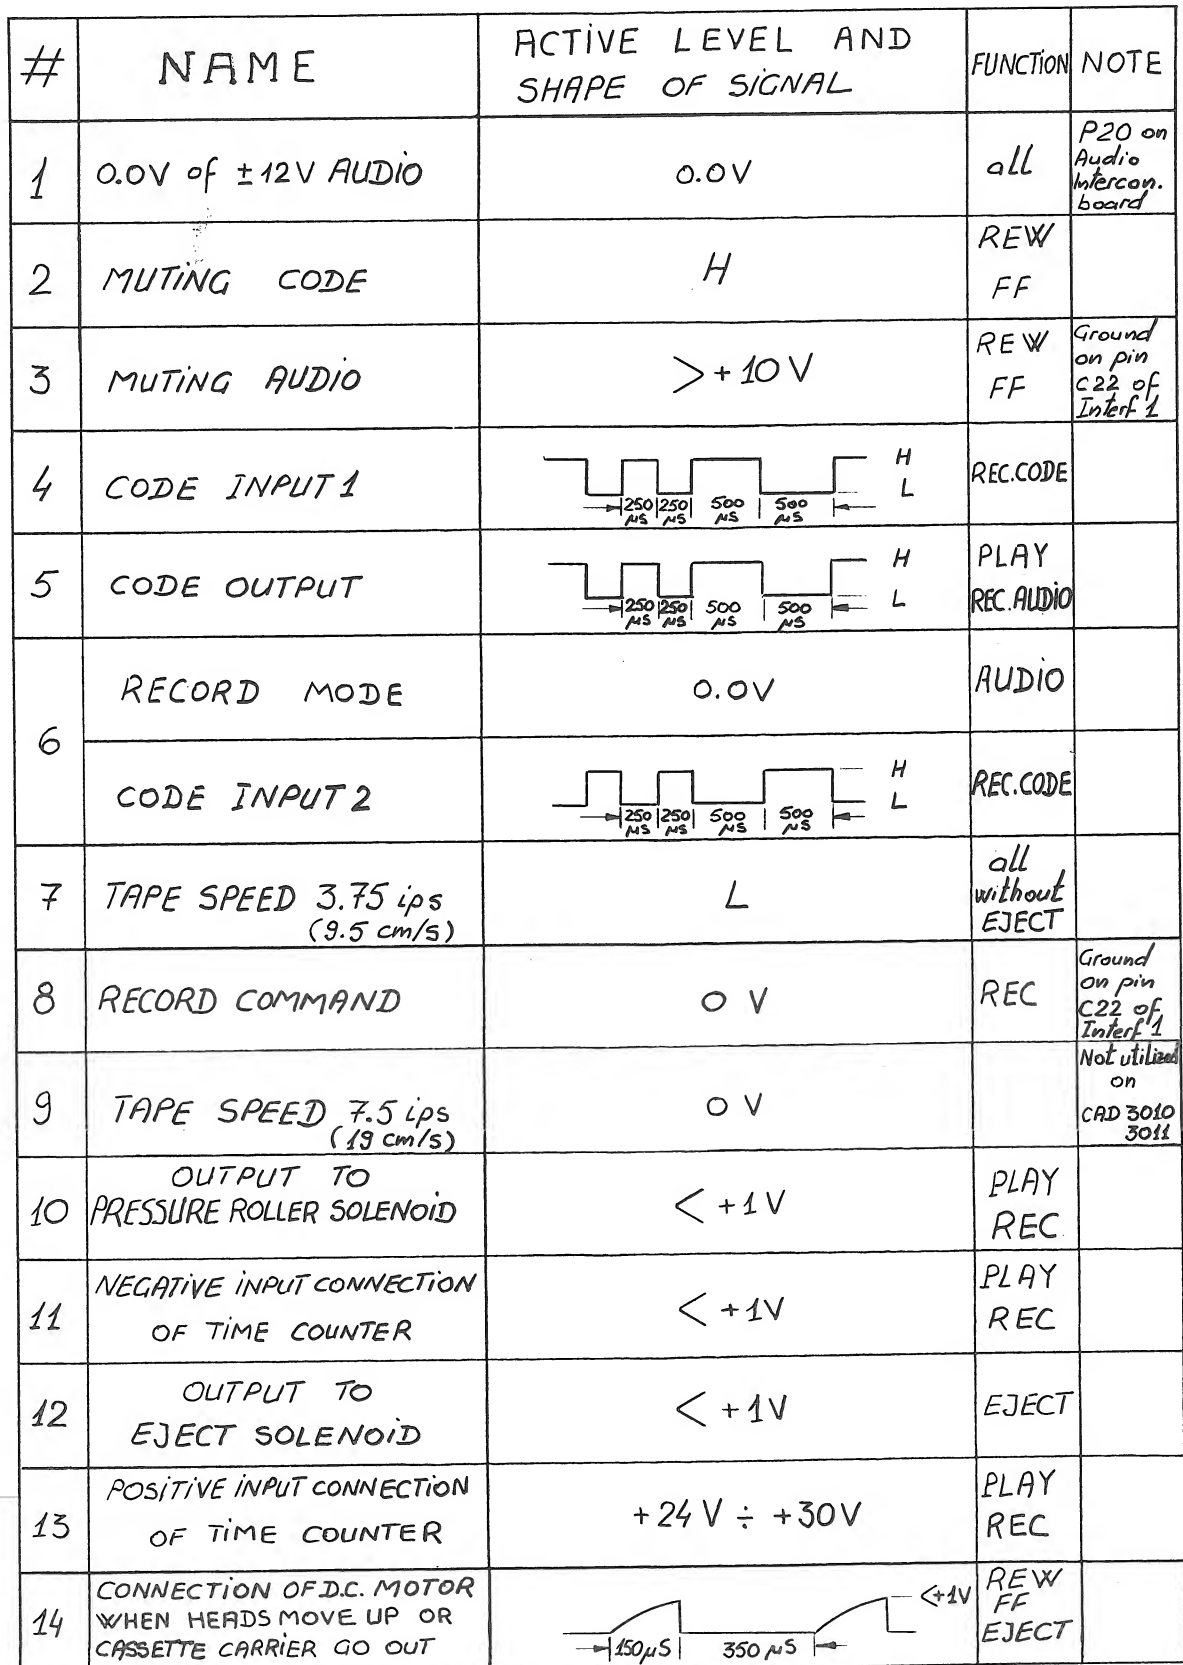 # NAME ACTIVE LEVEL AND SHAPE OF SIGNAL FUNCTION NOTE
1 0.0V of ±12V AUDIO 0.0V all P20 on Audio Intercon. board
2 MUTING CODE H REW FF
3 MUTING AUDIO >+10V REW FF Ground on pin C22 of Interf 1
4 CODE INPUT 1 H L 250 µS 250 µS 500 µS 500 µS REC.CODE
5 CODE OUTPUT H L 250 µS 250 µS 500 µS 500 µS PLAY REC.AUDIO
6 RECORD MODE 0.0V AUDIO
CODE INPUT 2 H L 250 µS 250 µS 500 µS 500 µS REC.CODE
7 TAPE SPEED 3.75 ips (9.5 cm/s) L all without EJECT
8 RECORD COMMAND 0 V REC Ground on pin C22 of Interf 1
9 TAPE SPEED 7.5 ips (19 cm/s) 0 V Not utilized on CAD 3010 3011
10 OUTPUT TO PRESSURE ROLLER SOLENOID < +1V PLAY REC
11 NEGATIVE INPUT CONNECTION OF TIME COUNTER < +1V PLAY REC
12 OUTPUT TO EJECT SOLENOID < +1V EJECT
13 POSITIVE INPUT CONNECTION OF TIME COUNTER +24V ÷ +30V PLAY REC
14 CONNECTION OF D.C. MOTOR WHEN HEADS MOVE UP OR CASSETTE CARRIER GO OUT <+1V 150µS 350µS REW FF EJECT